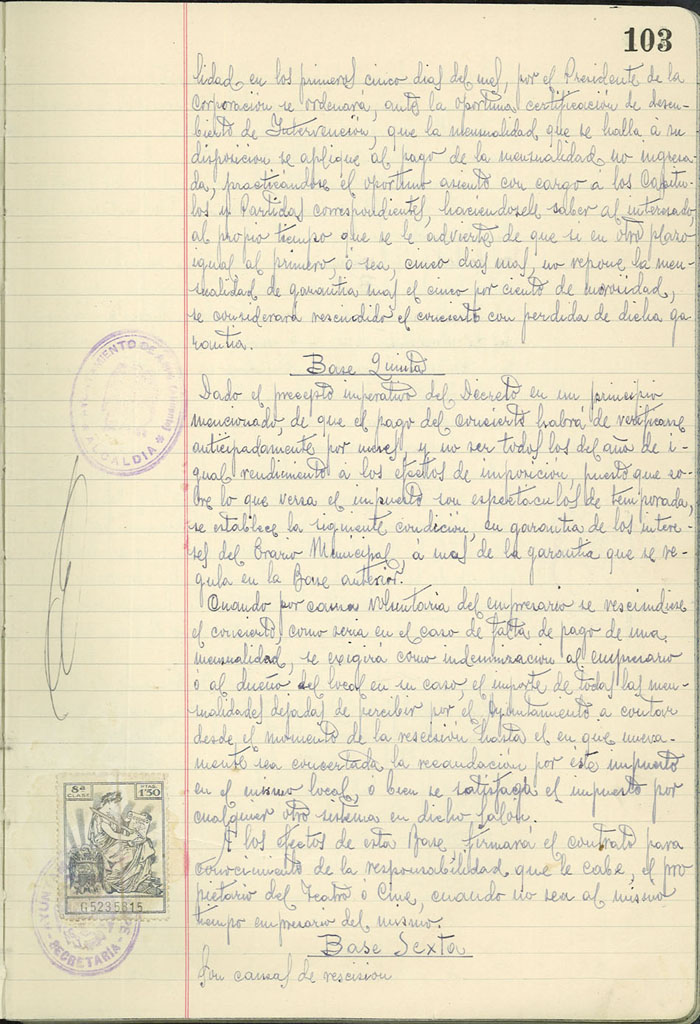 103
lidad en los primeros cinco dias del mes, por el Presidente de la
Corporación se ordenará, ante la oportuna certificación de descu-
bierto de Intervención, que la mensualidad que se halla á su
disposicion se aplique al pago de la mensualidad no ingresa-
da, practicándose el oportuno asiento con cargo á los Capitu-
los y Partidas correspondientes, haciendosele saber al interesado,
al propio tiempo que se le advierte de que si en otro plazo
igual al primero, ó sea, cinco dias mas, no repone la men-
sualidad de garantia mas el cinco por ciento de morosidad,
se considerará rescindido el concierto con perdida de dicha ga
rantia.
Base Quinta
Dado el precepto imperativo del Decreto en un principio
mencionado, de que el pago del concierto habrá de verificarse
anticipadamente por meses, y no ser todos los del año de i-
gual rendimiento á los efectos de imposición, puesto que so-
bre lo que versa el impuesto son espectaculos de temporada,
se establece la siguiente condición, en garantia de los intere-
ses del Erario Municipal, á mas de la garantia que se re-
gula en la Base anterior.
Cuando por causa voluntaria del empresario se rescindiese
el concierto, como seria en el caso de falta de pago de una
mensualidad, se exigirá como indemnizacion al empresario
ó al dueño del local en su caso, el importe de todas las men-
sualidades dejadas de percibir por el Ayuntamiento a contar
desde el momento de la rescisión hasta el en que nueva-
mente sea concertada la recaudación por este impuesto
en el mismo local, ó bien se satisfaga el impuesto por
cualquier otro sistema en dicho Salón.
A los efectos de esta Base, firmará el contrato para
conocimiento de la responsabilidad que le cabe, el pro
pietario del Teatro ó Cine, cuando no sea al mismo
tiempo empresario del mismo.
Base Sexta
Son causas de rescision
ALCALDIA
8ª CLASE
PTAS 1'50
G5235815
SECRETARIA